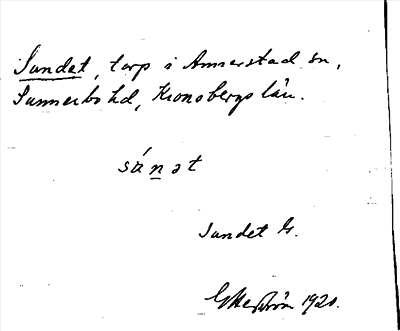 Sundet, torp i Annerstad sn,
Sunnerbo hd, Kronobergs län.
sánət
Sundet G.
1920.